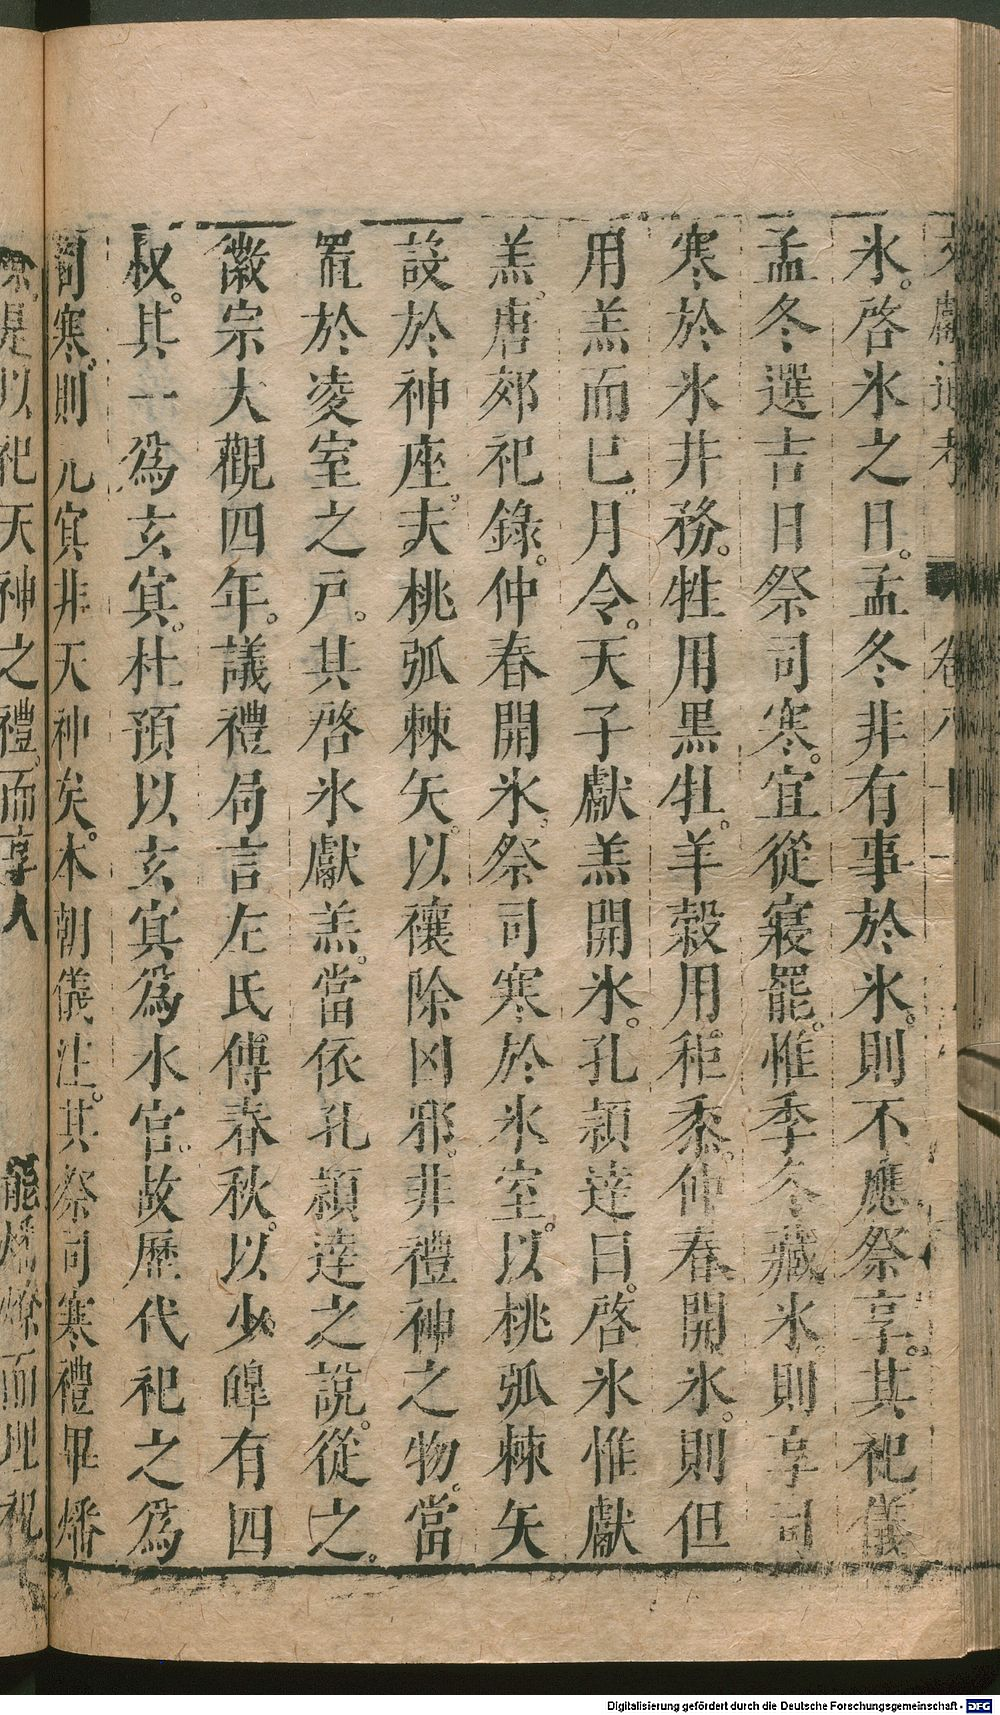 文獻通考 卷八十一
氷。啓氷之日。孟冬非有事於氷。則不應祭享。其祀儀
孟冬選吉日祭司寒。宜從寢罷。惟季冬藏氷。則享司
寒於氷井務。牲用黑牡羊榖用秬黍。仲春開氷。則但
用羔而已。月令。天子獻羔開氷。孔穎達曰。啓氷惟獻
羔。唐郊祀錄。仲春開氷。祭司寒於氷室。以桃弧棘矢
設於神座。夫桃弧棘矢。以禳除凶邪。非禮神之物。當
置於凌室之戶。其啓氷獻羔。當依孔穎達之說。從之。
徽宗大觀四年。議禮局言左氏傳春秋。以少皥有四
叔。其一爲玄冥。杜預以玄冥爲水官。故歷代祀之爲
司寒。則元冥非天神矣。本朝儀注。其祭司寒禮畢燔
燎。是以祀天神之禮。而享人 能燔燎而埋祝
Digitalisierung gefördert durch die Deutsche Forschungsgemeinschaft - DFG